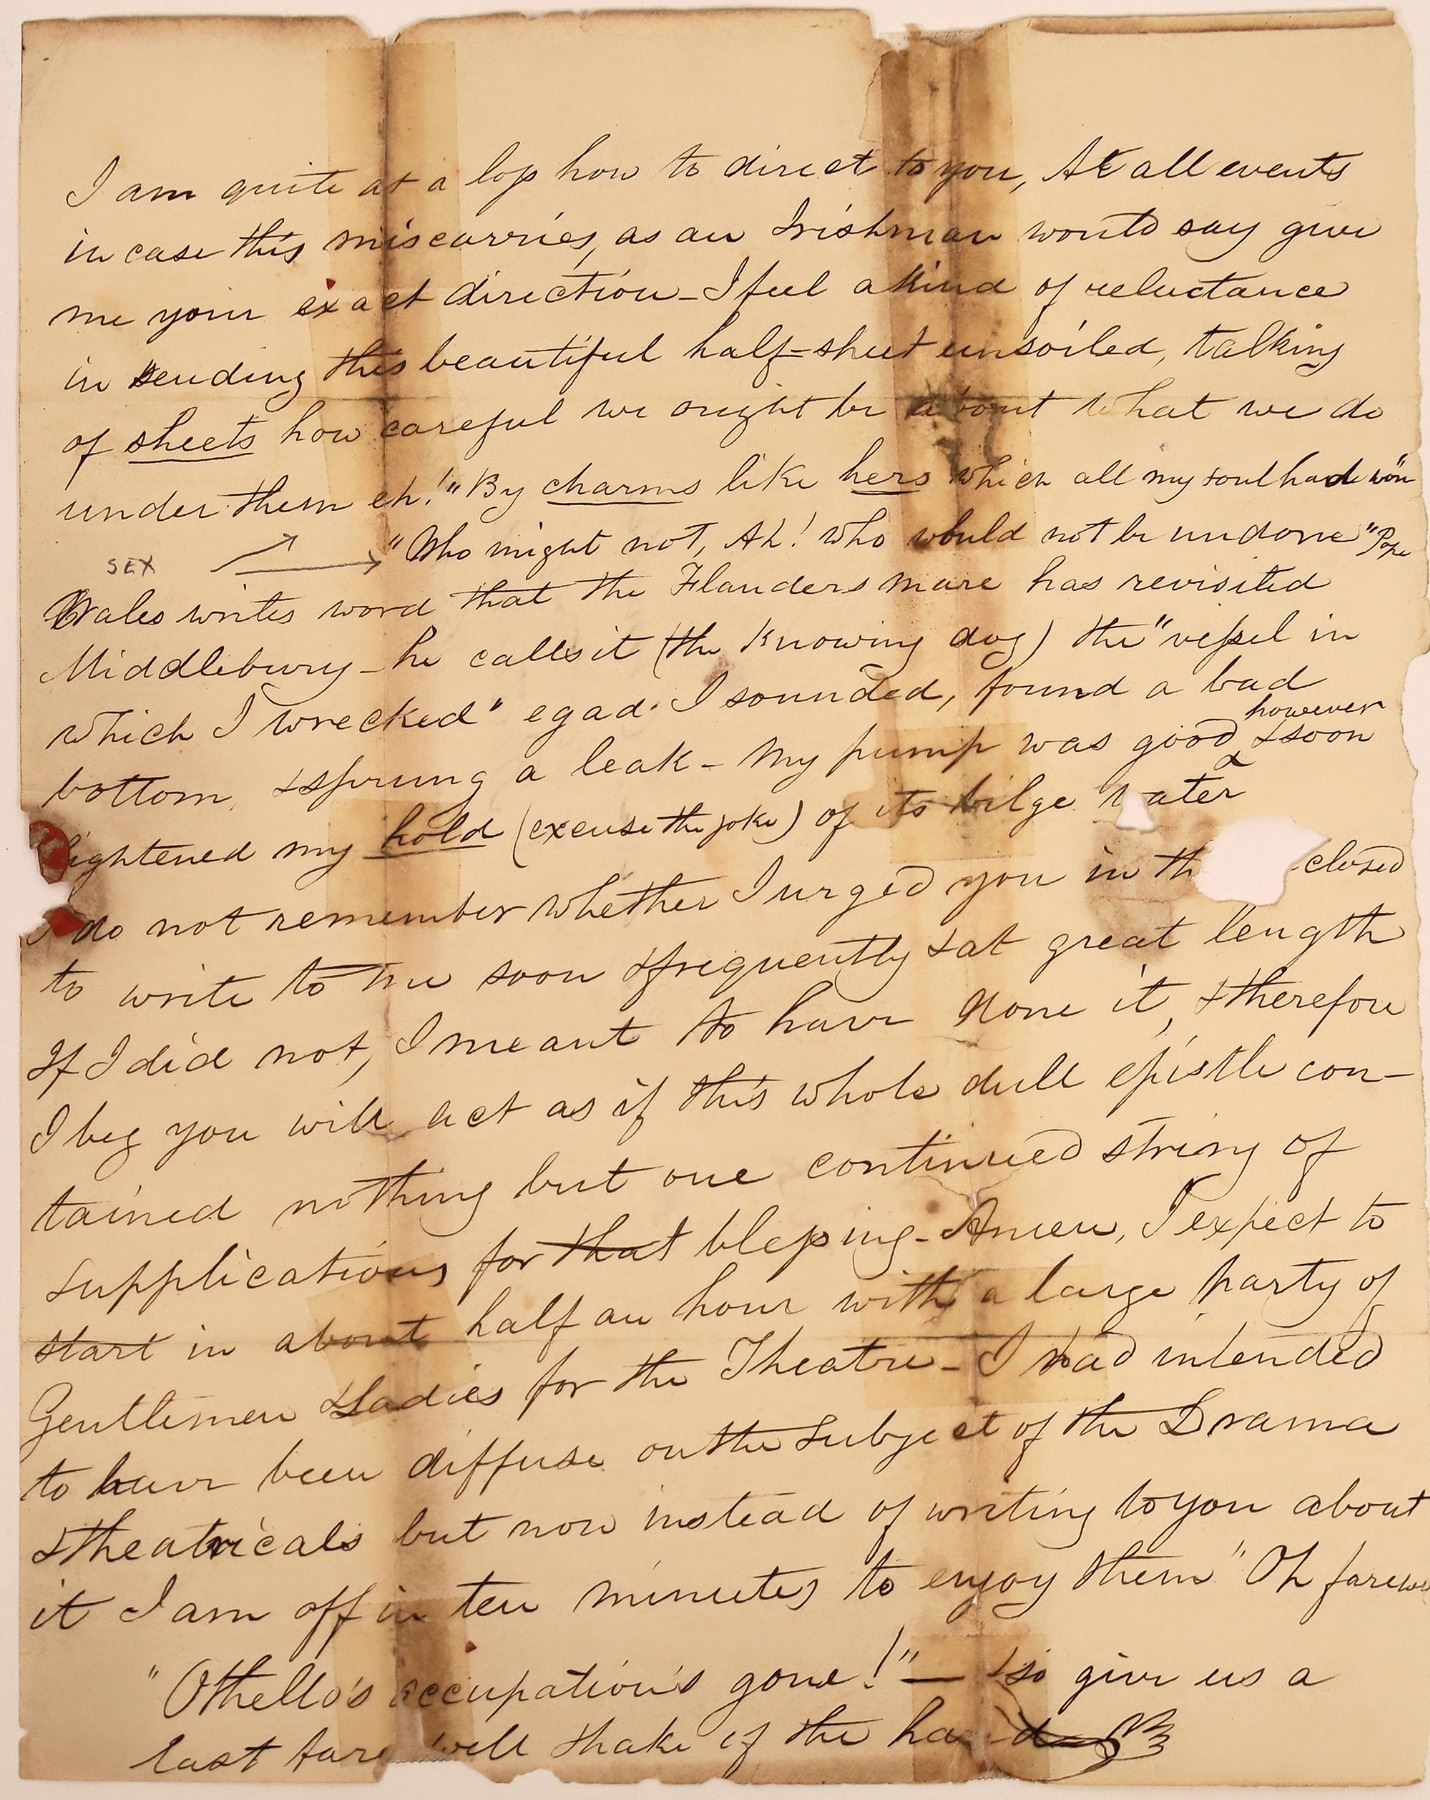 I am quite at a loss how to direct to you, At all events
in case this miscarries, as an Irishman would say give
me your exact direction - I feel a kind of reluctance
in sending this beautiful half=sheet unsoiled, talking
of sheets how careful we ought be about what we do
under them eh! "By charms like hers which all my soul had won
"Who might not, Ah! who would not be undone" Pope
SEX
Wales writes word that the Flanders mare has revisited
Middlebury - he calls it (the knowing dog) the "vessel in
which I wrecked" egad. I sounded, found a bad
bottom, & sprung a leak - My pump was good, however & soon
lightened my hold (excuse the joke) of its bilge water
I do not remember whether I urged you in th closed
to write to me soon & frequently & at great length
If I did not, I meant to have done it, & therefore
I beg you will act as if this whole dull epistle con-
tained nothing but one continued string of
supplications for that blessing - Amen, I expect to
start in about half an hour with a large party of
Gentlemen & Ladies for the Theatre - I had intended
to have been diffuse on the subject of the Drama
& theatricals but now instead of writing to you about
it I am off in ten minutes to enjoy them "Oh farewe
"Othello's occupation's gone!" — & so give us a
last fare well shake of the hand